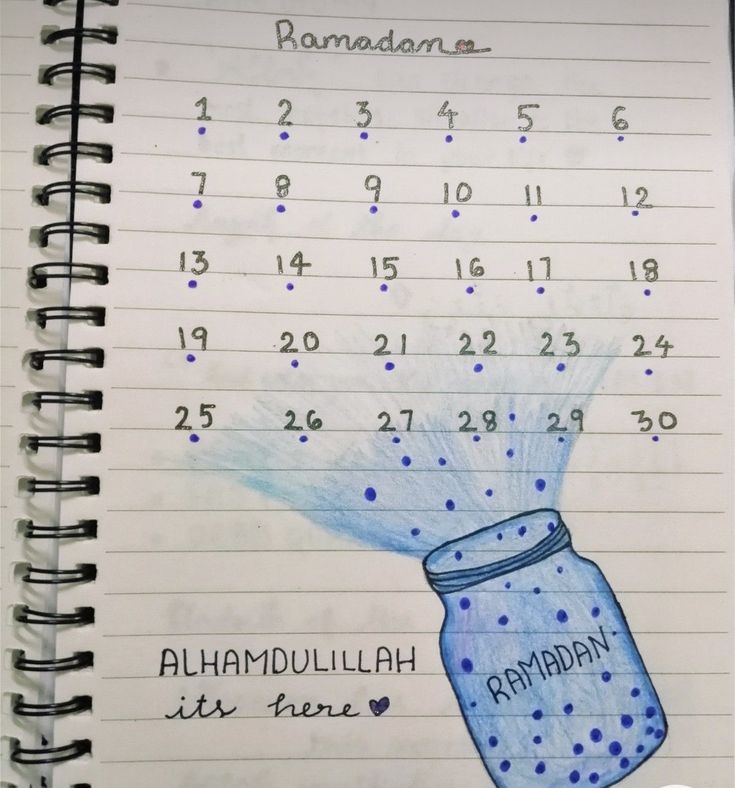 Ramadan
1 2 3 4 5 6
7 8 9 10 11 12
13 14 15 16 17 18
19 20 21 22 23 24
25 26 27 28 29 30
RAMADAN
ALHAMDULILLAH
its here